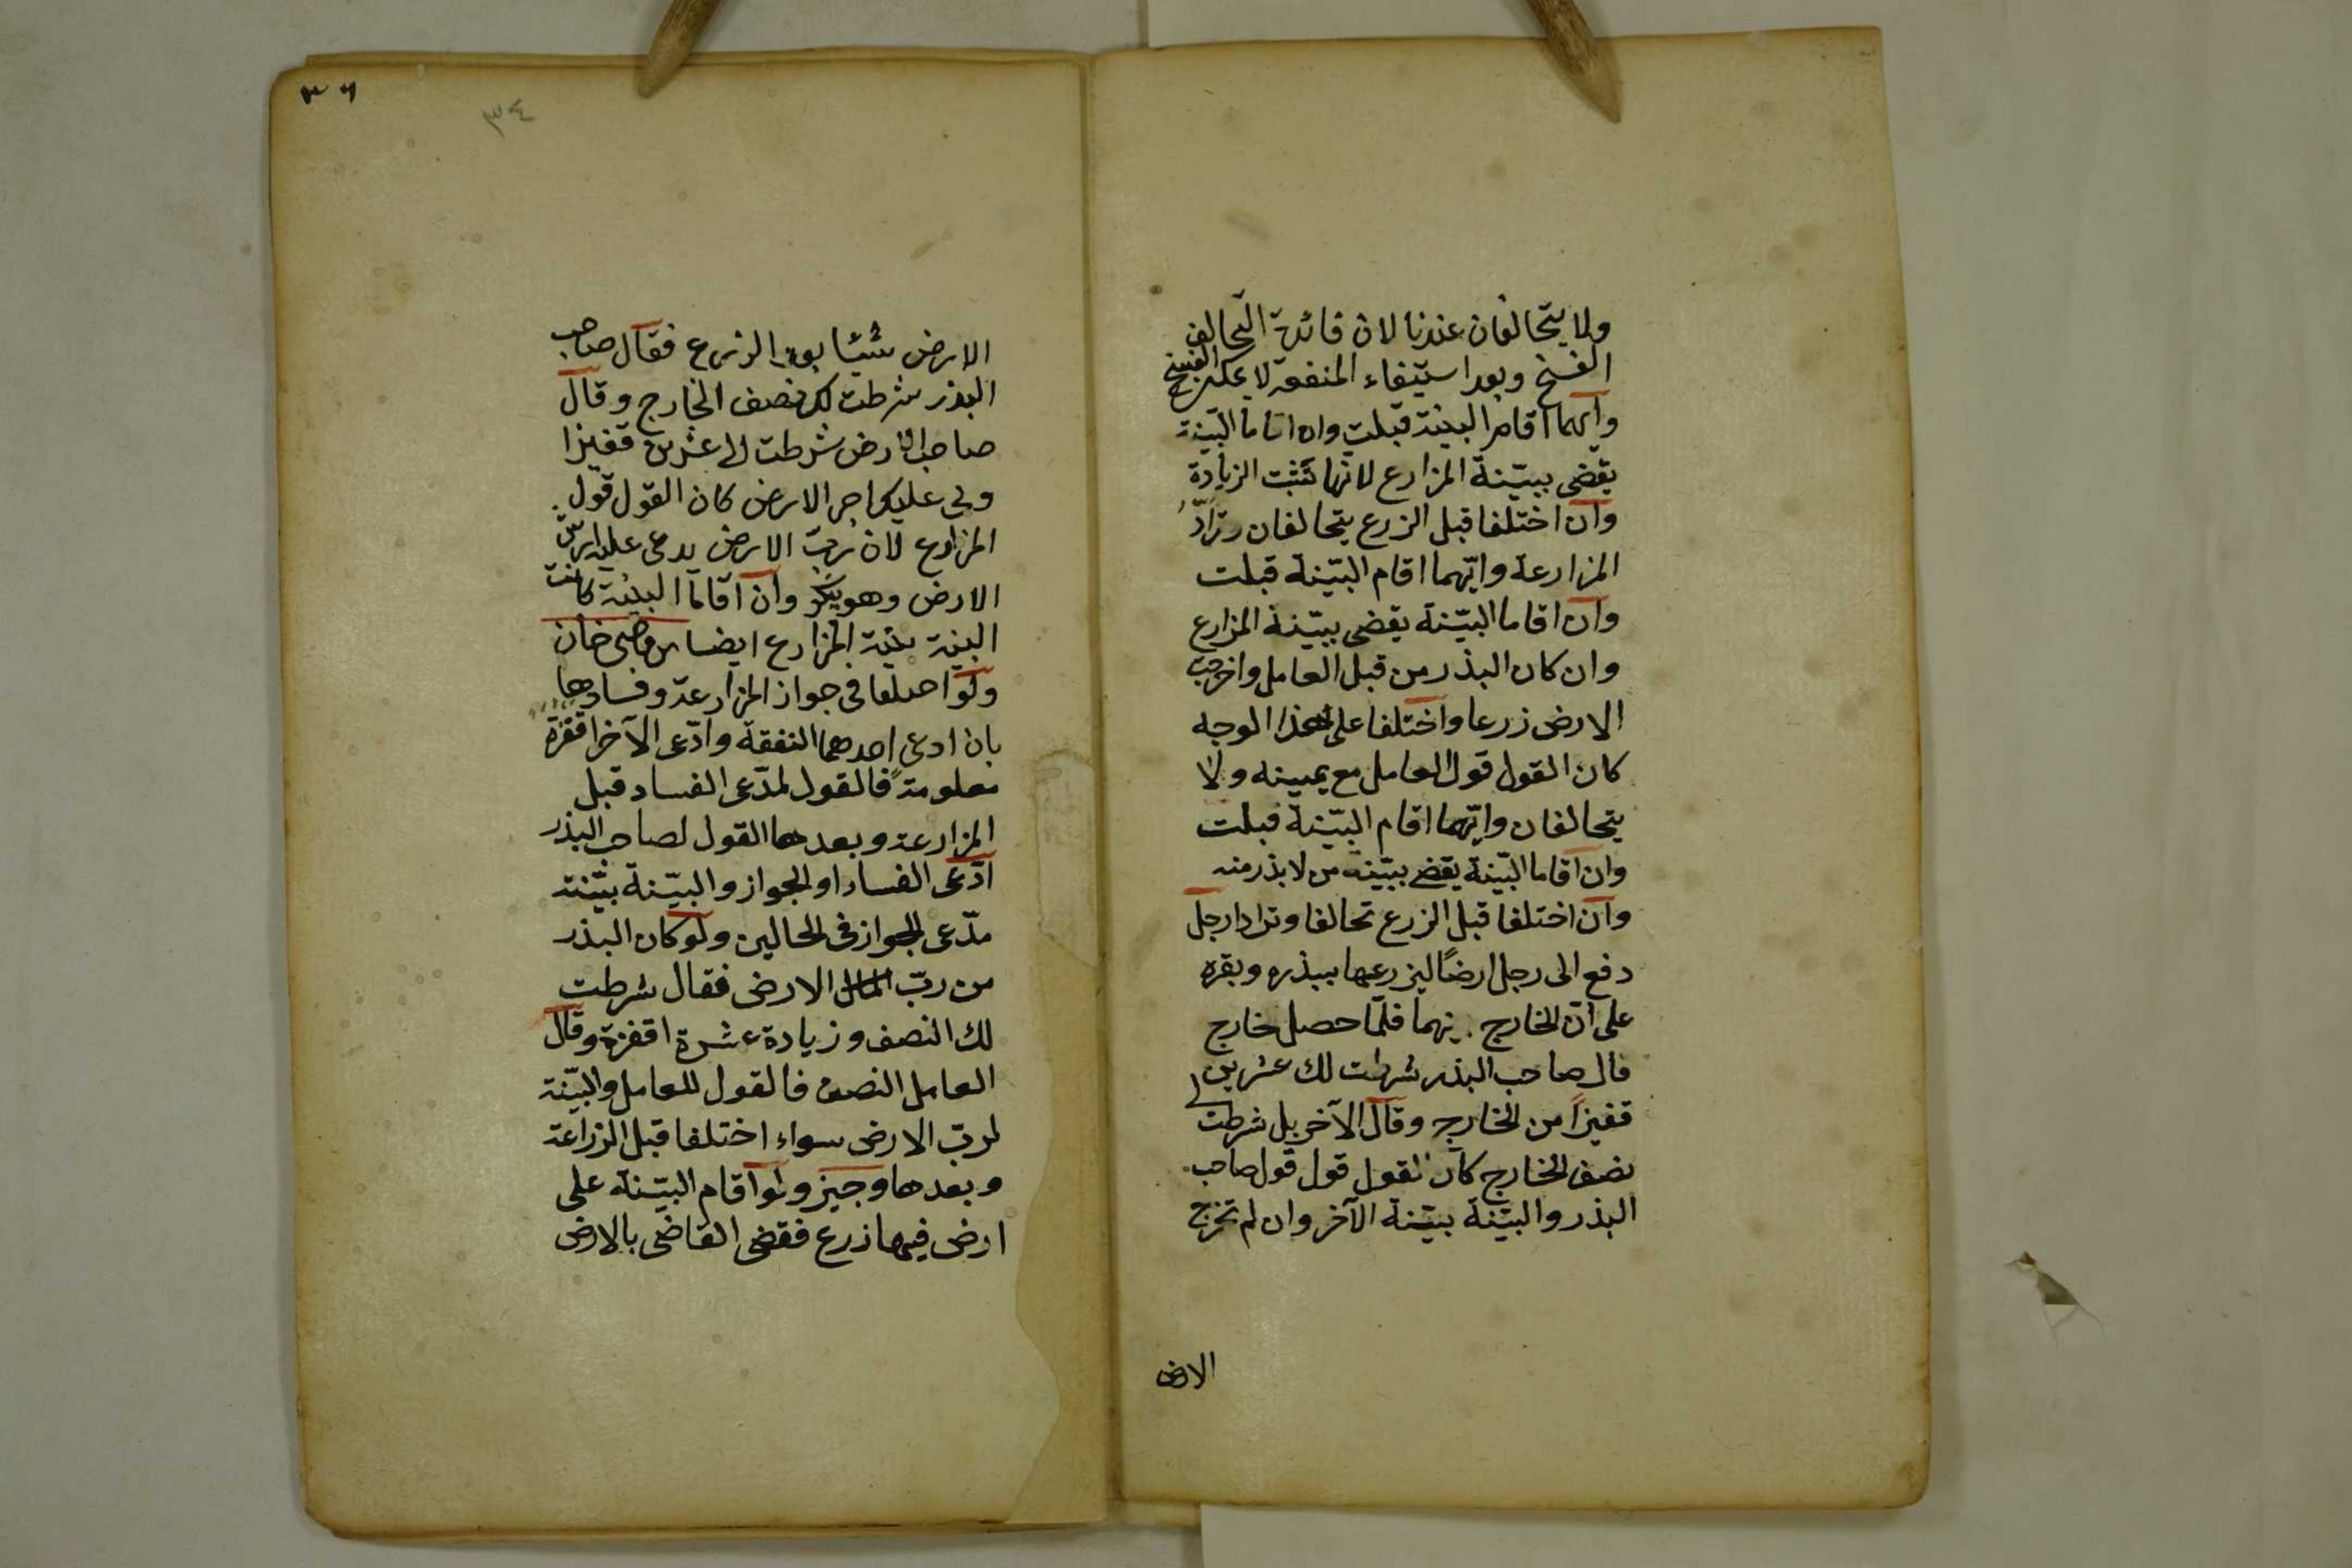 ولا يتحالفان عندنا لان فائدة التحالف
الفسخ وبعد استيفاء المنفعة لا يمكن الفسخ
وايهما اقام البينة قبلت وان اقاما البينة
يقضى ببينة المزارع لانها تثبت الزيادة
وان اختلفا قبل الزرع يتحالفان وترادّ
المزارعة وايّهما اقام البيّنة قبلت
وان اقاما البيّنة يقضى ببيّنة المزارع
وان كان البذر من قبل العامل واخرجت
الارض زرعا واختلفا على هذا الوجه
كان القول قول العامل مع يمينه ولا
يتحالفان وايّهما اقام البيّنة قبلت
وان اقاما البيّنة يقضى ببيّنة من لا بذر منه
وان اختلفا قبل الزرع تحالفا وترادا رجل
دفع الى رجل ارضاً ليزرعها ببذره وبقره
على انّ الخارج بينهما فلمّا حصل خارج
قال صاحب البذر شرطت لك عشرين
قفيزاً من الخارج وقال الآخر بل شرطت لى
نصف الخارج كان القول قول قول صاحب
البذر والبيّنة بيّنة الآخر وان لم تخرج
الارض
٣٦
٣٤
الارض شيئا بعد الزرع فقال صاحب
البذر شرطت لك نصف الخارج وقال
صاحب الارض شرطت لى عشرين قفيزا
ولى عليك اجر الارض كان القول قول
المزارع لان ربّ الارض يدعى عليه اجر
الارض وهو ينكر وان اقاما البينة كانت
البينة بينة المزارع ايضا من قاضى خان
ولو اختلفا فى جواز المزارعة وفسادها
بان ادعى احدهما النفقة وادّعى الآخر اقفزة
معلومة فالقول لمدّعى الفساد قبل
المزارعة وبعدها القول لصاحب البذر
ادّعى الفساد او الجواز والبيّنة بيّنة
مدّعى الجواز فى الحالين ولو كان البذر
من ربّ المال الارض فقال شرطت
لك النصف وزيادة عشرة اقفزة وقال
العامل النصف فالقول للعامل والبيّنة
لربّ الارض سواء اختلفا قبل الزراعة
وبعدها وجيز ولو اقام البيّنة على
ارض فيها زرع فقضى القاضى بالارض